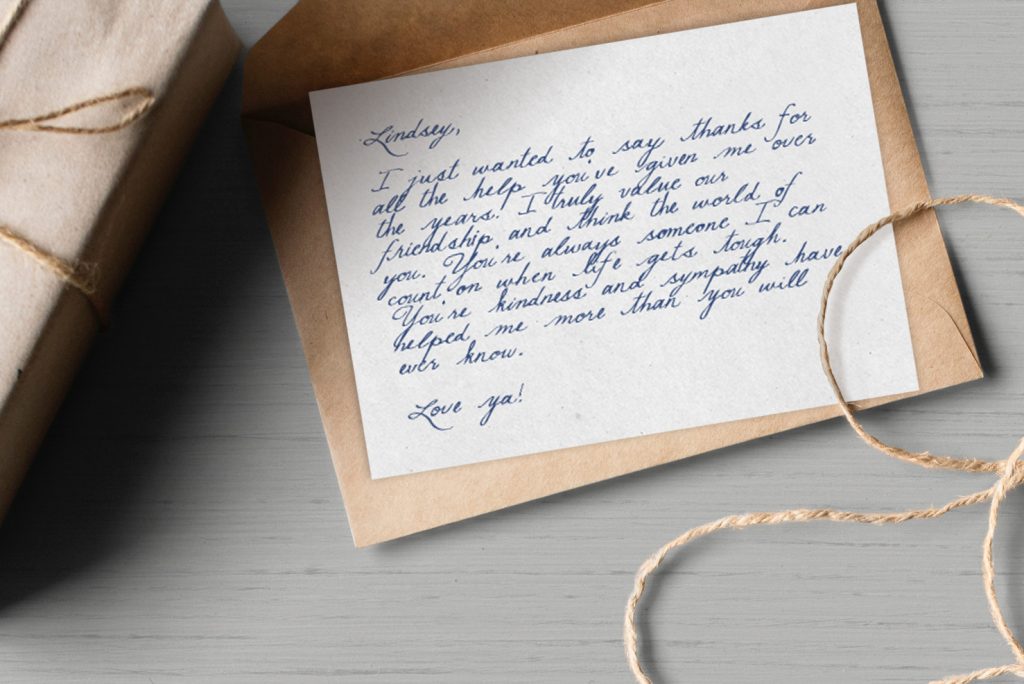 Lindsey,
I just wanted to say thanks for
all the help you've given me over
the years! I truly value our
friendship, and think the world of
you. You're always someone I can
count on when life gets tough.
You're kindness and sympathy have
helped me more than you will
ever know.
Love ya!